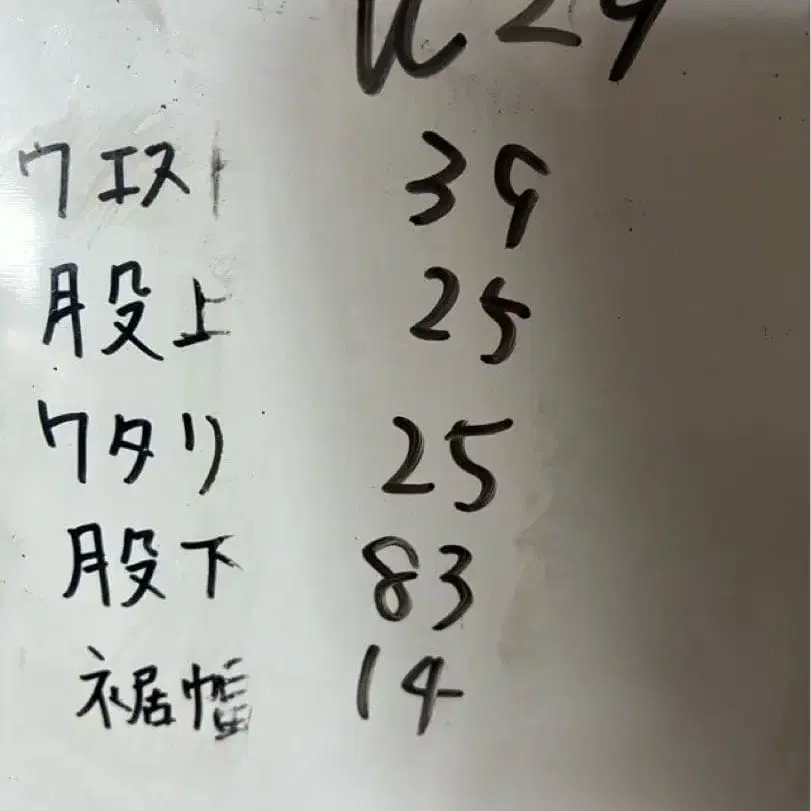 ウエスト 39
股上 25
ワタリ 25
股下 83
裾幅 14